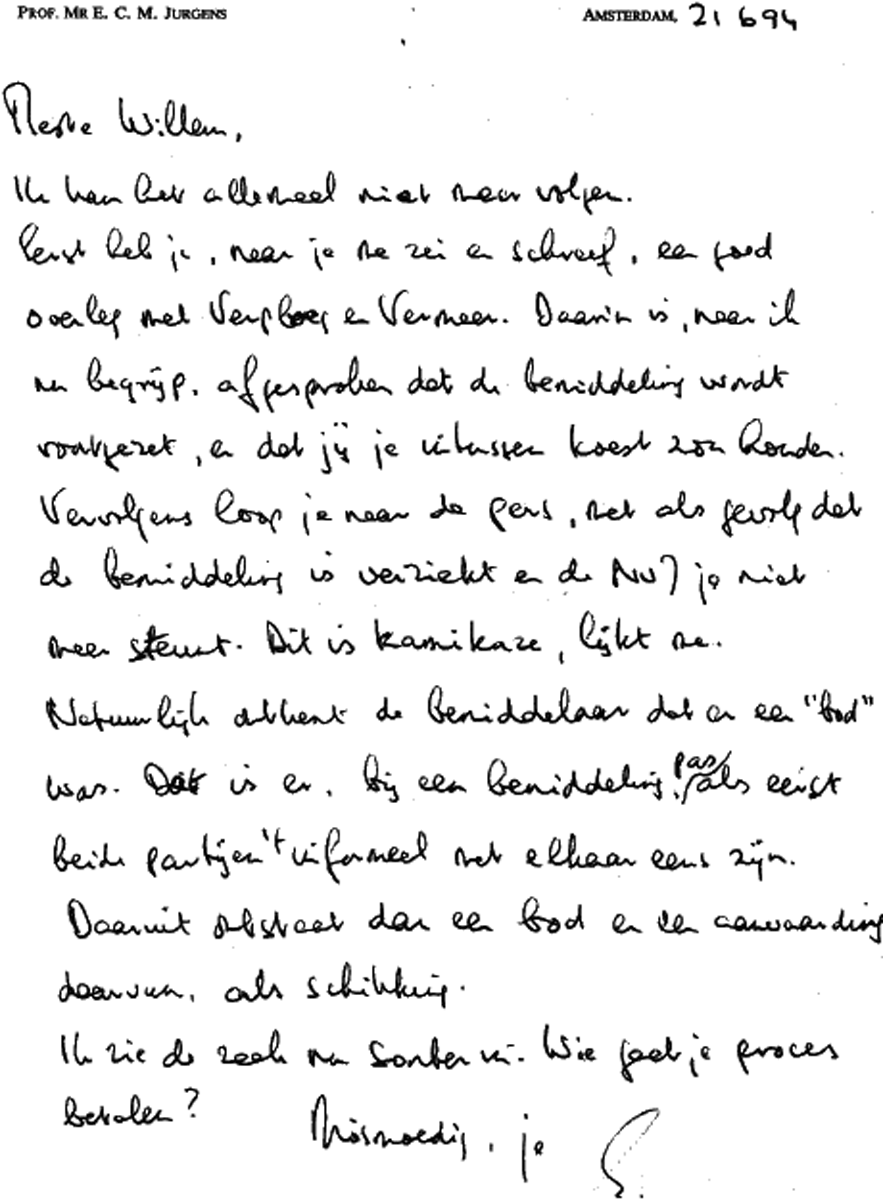 PROF. MR E. C. M. JURGENS
AMSTERDAM, 21 6 94
Beste Willem,
Ik kan het allemaal niet meer volgen.
Eerst heb je, naar je me zei en schreef, een goed
overleg met Verploeg en Vermeer. Daarin is, naar ik
nu begrijp, afgesproken dat de bemiddeling wordt
voortgezet, en dat jij je intussen koest zou houden.
Vervolgens loop je naar de pers, met als gevolg dat
de bemiddeling is verziekt en de NVJ je niet
meer steunt. Dit is kamikaze, lijkt me.
Natuurlijk ontkent de bemiddelaar dat er een "bod"
was. Dat is er, bij een bemiddeling, pas als eerst
beide partijen 't informeel met elkaar eens zijn.
Daaruit ontstaat dan een bod en een aanvaarding
daarvan, als schikking.
Ik zie de zaak nu somber in. Wie gaat je proces
betalen?
Mismoedig, je